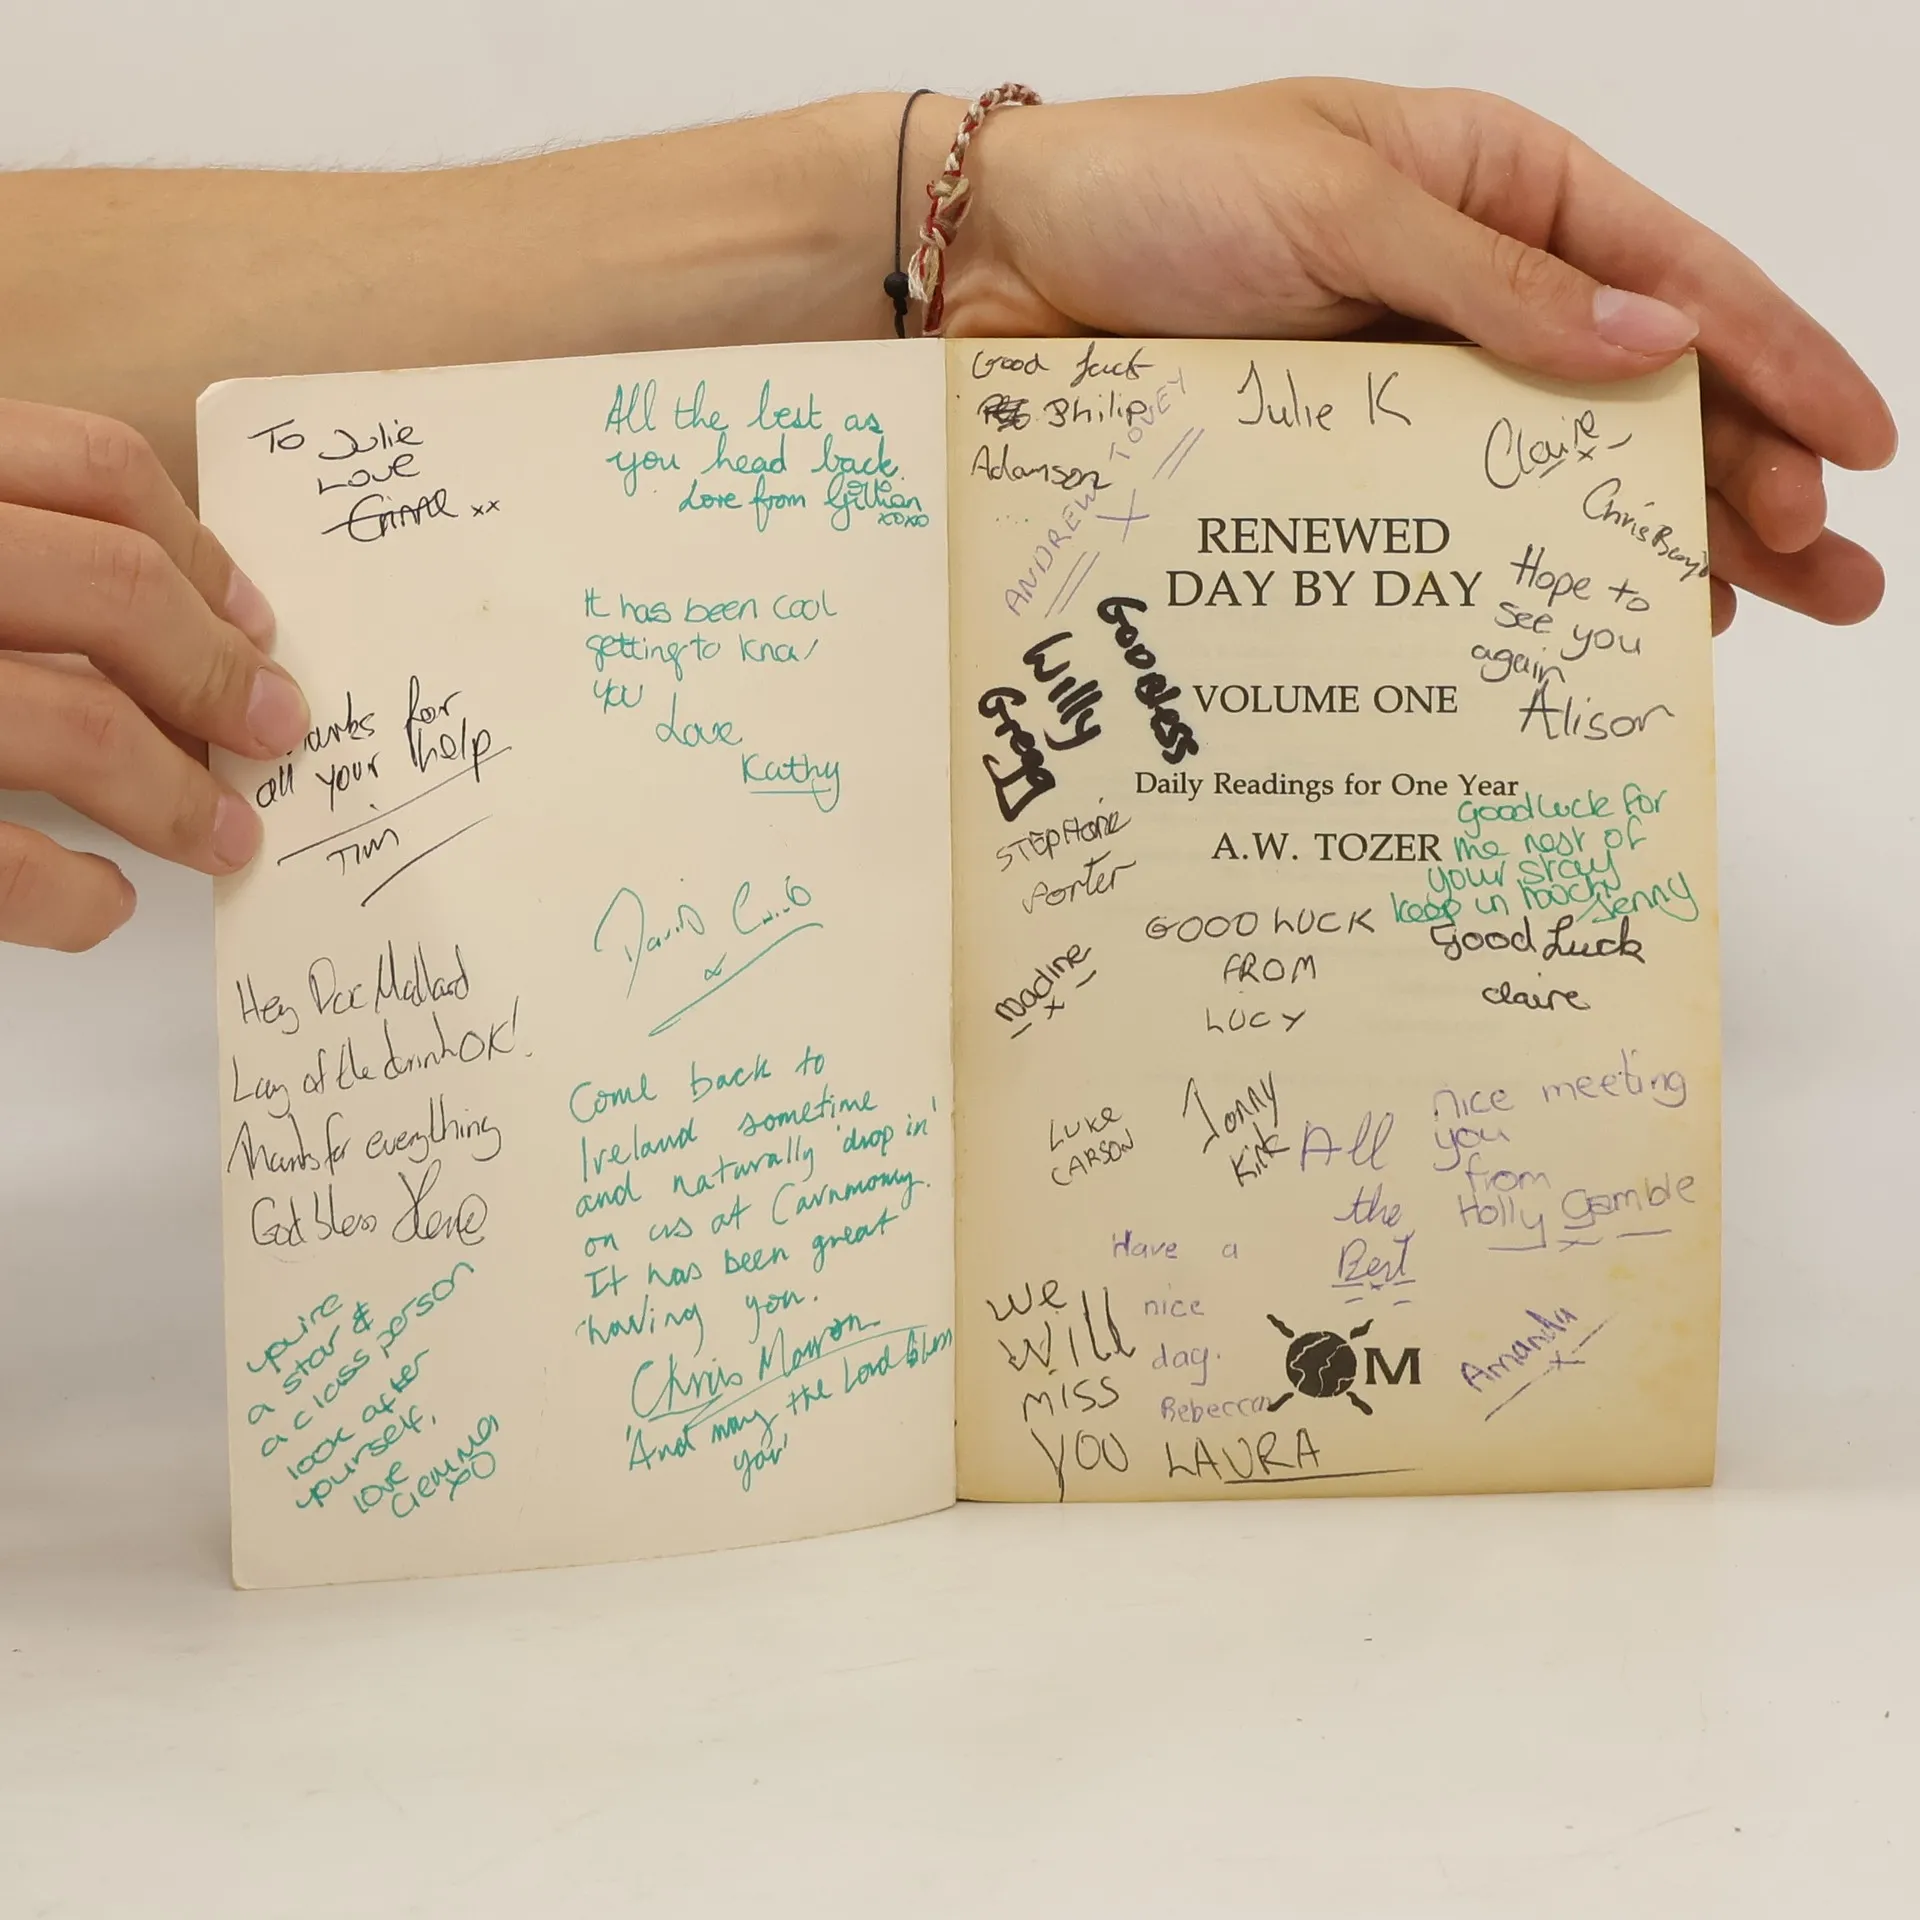 To Julie
Love
xx
All the best as
you head back.
Love from Gillian
xoxo
It has been cool
getting to know
you
Love
Kathy
Thanks for
all your help
Tim
David
x
Hey Doc Mallard
Lay of the drink OK!
Thanks for everything
God bless
Come back to
Ireland sometime
and naturally 'drop in'
on us at Carnmoney.
It has been great
having you.
Chris
'And may the Lord bless
you'
you're
a star &
a class person
look after
yourself,
love
Gemma
xo
Good luck
Philip
Adamson
ANDREW TOVEY
X
Julie K
Claire
x
Chris
Hope to
see you
again
Alison
RENEWED
DAY BY DAY
VOLUME ONE
Daily Readings for One Year
A.W. TOZER
God bless
Willy
Gregg
Stephanie
Porter
Good luck for
the rest of
your stay
keep in touch
Jenny
GOOD LUCK
FROM
LUCY
Good Luck
claire
Nadine
x
LUKE
CARSON
Jonny
Kirk
All
the
Best
nice meeting
you
from
Holly Gamble
x
Have a
nice
day.
Rebecca
We
Will
miss
you LAURA
OM
Amanda
x